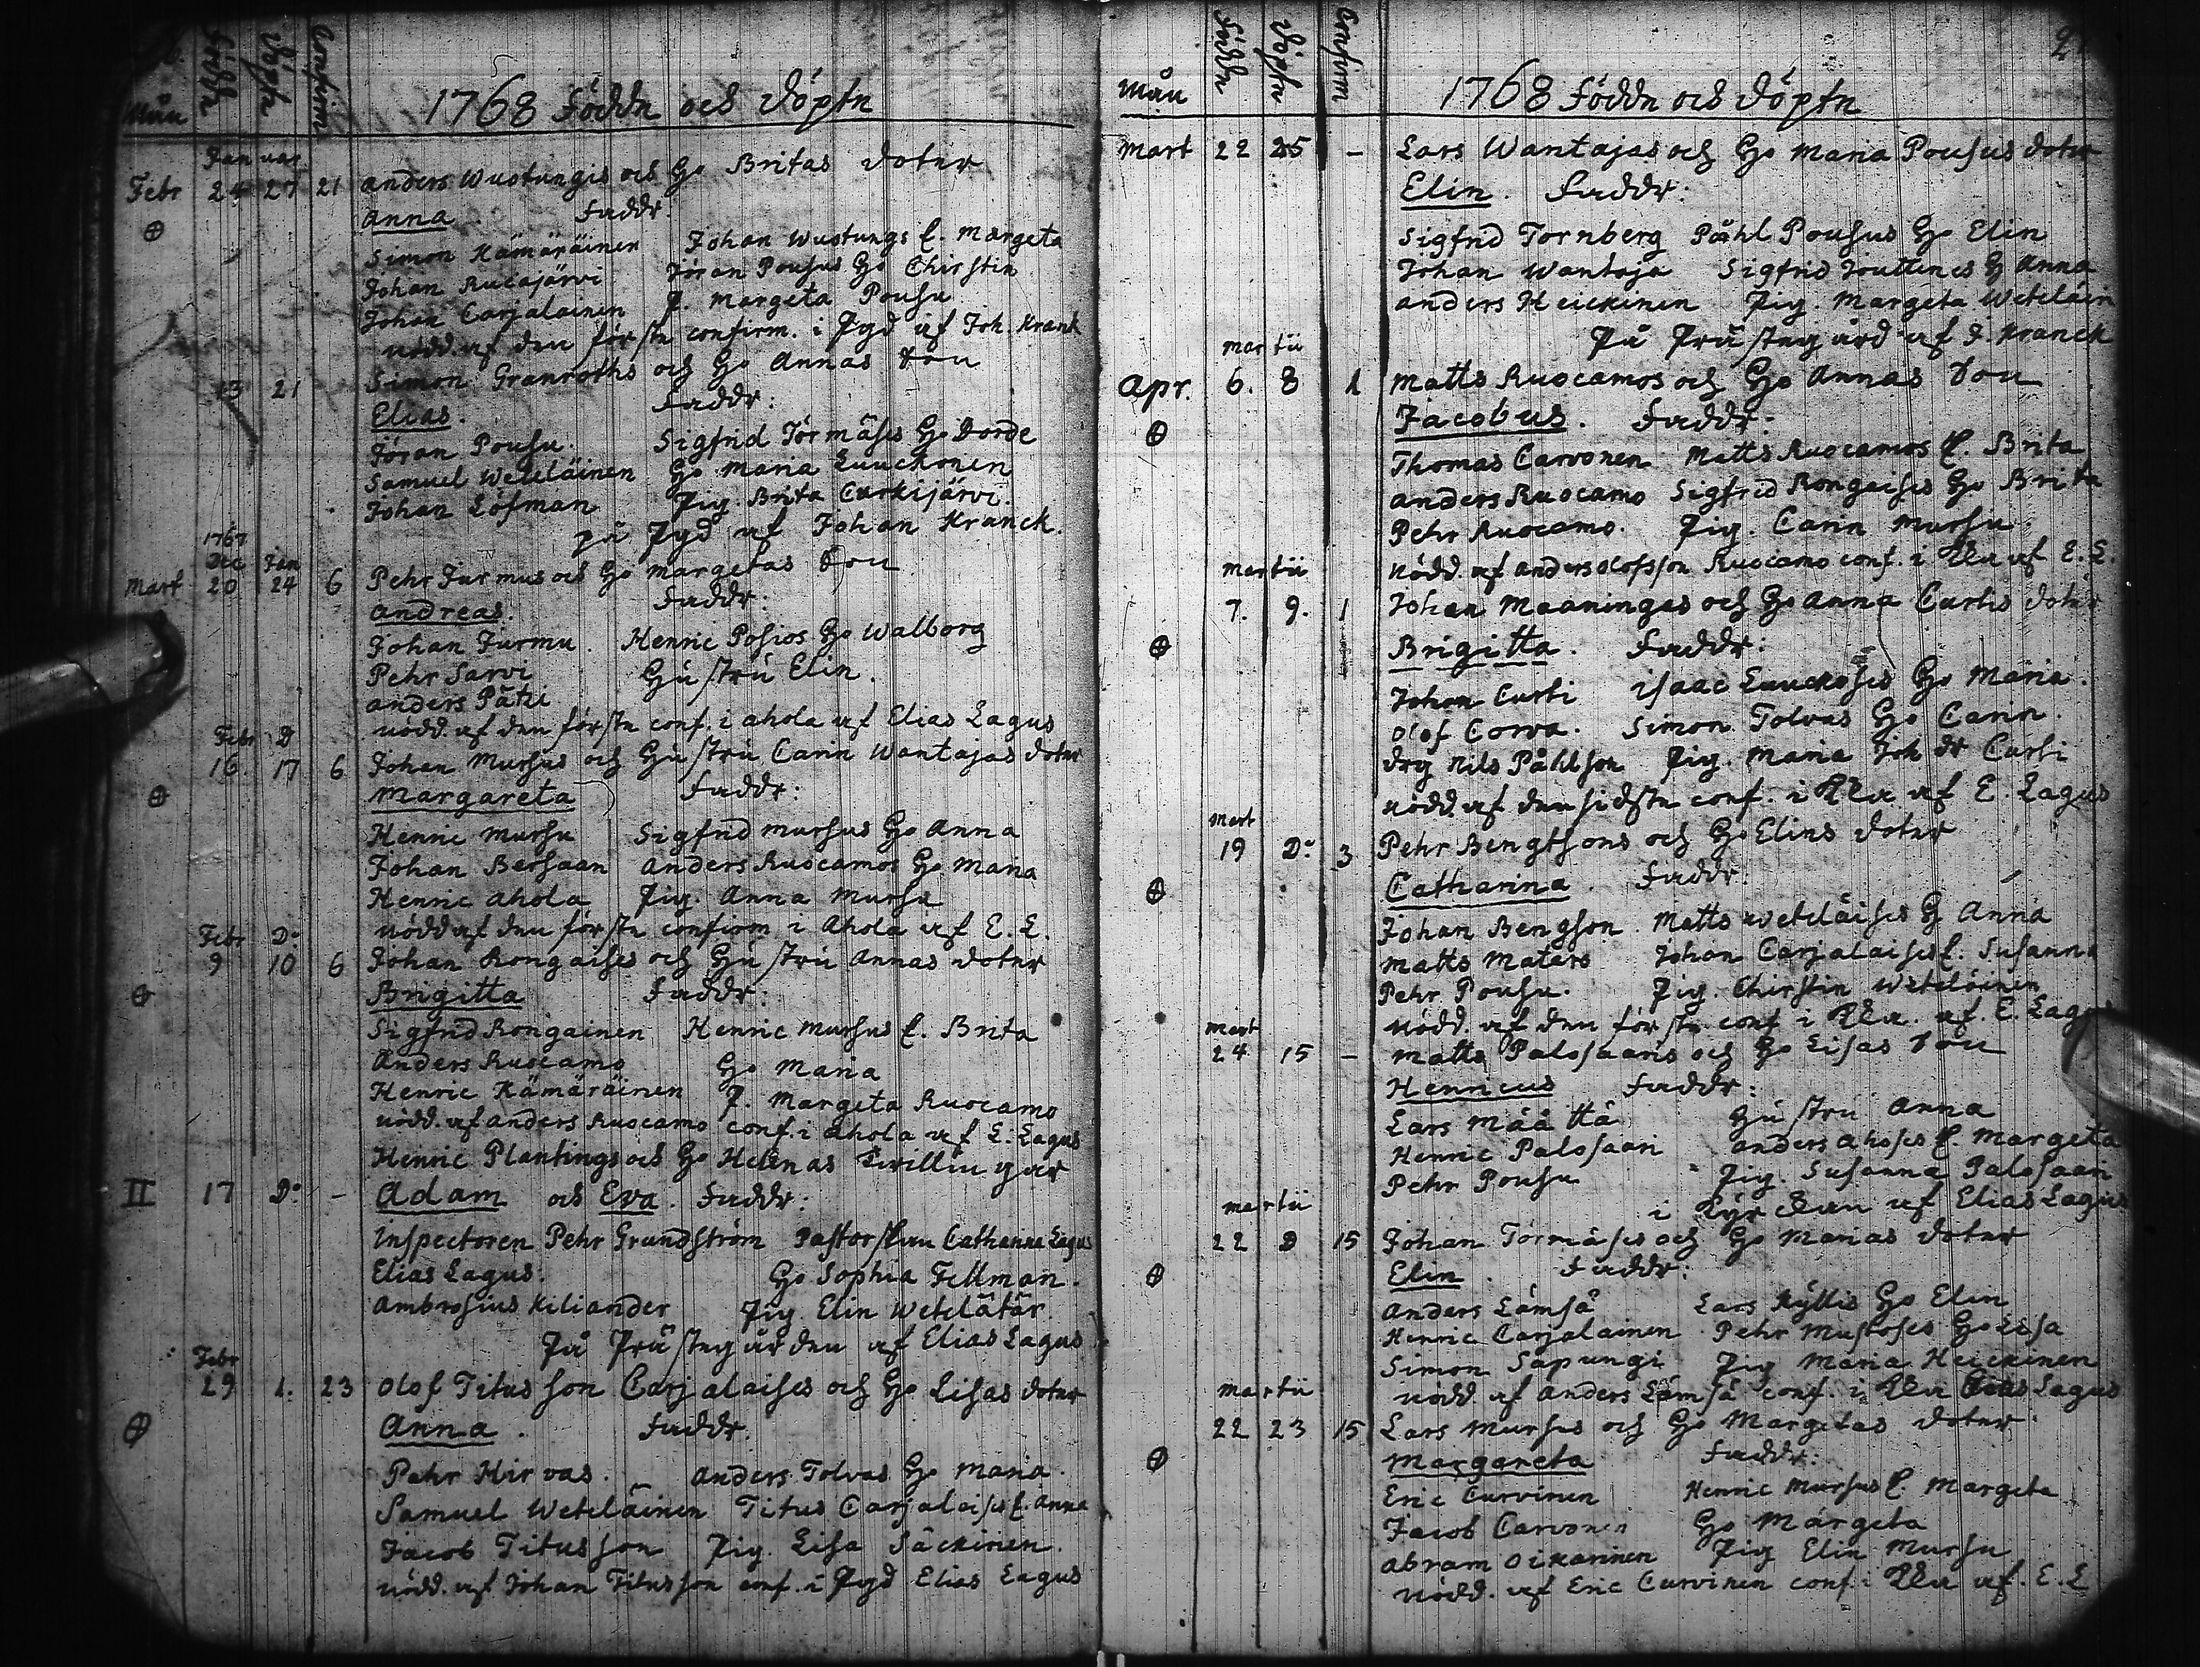 Mån Född Döpte Confirm 1768 Födde och Döpte
Januar
Febr 24 27 21 Anders Wuotungis och Ho Britas doter
Anna Faddr:
Simon Kämäräinen Johan Wuotungs E. Margeta
Johan Rucajärvi Jöran Pousus Ho Chirstin
Johan Carjalainen P. Margeta Pousu
nödd. af den förste confirm. i Pgd af Joh. Krank
13 21 Simon Granroths och Ho Annas Son
Elias. Faddr:
Jöran Pousu. Sigfrid Törmäses Ho Dorde
Samuel Weteläinen Ho Maria Luuckonen
Johan Löfman Pig. Brita Curkijärvi.
på Pgd af Johan Kranck.
1767
Dec Jan
Mart 20 24 6 Pehr Jurmus och Ho Margetas Son
Andreas. Faddr:
Johan Jurmu. Henric Posios Ho Walborg
Pehr Sarvi Hustru Elin.
Anders Pätzi
nödd. af den förste conf. i Ahola af Elias Lagus
Febr D
16 17 6 Johan Mursus och Hustru Carin Wantajas doter
Margareta Faddr:
Henric Mursu Sigfrid Mursus Ho Anna
Johan Bersaan Anders Ruocamos Ho Maria
Henric Ahola Pig. Anna Mursu
nödd af den förste confirm i Ahola af E. L.
Febr Do
9 10 6 Johan Rongaises och Hustru Annas doter
Brigitta Faddr:
Sigfrid Rongainen Henric Mursus E. Brita
Anders Ruocamo Ho Maria
Henric Kämäräinen P. Margeta Ruocamo
nödd. af Anders Ruocamo conf. i Ahola af E. Lagus
Henric Plantings och Ho Helenas Twillingar
II 17 Do – Adam och Eva. Faddr:
Inspectoren Pehr Grundström Pastorskan Catharina Lagus
Elias Lagus. Ho Sophia Fellman.
Ambrosius Kiliander Pig Elin Wetelätär
På Prästegården af Elias Lagus
Febr
29 1. 23 Olof Titusson Carjalaises och Ho Lisas doter
Anna. Faddr.
Pehr Hirvas. Anders Tolvas Ho Maria.
Samuel Weteläinen Titus Carjalaises E. Anna
Jacob Titusson Pig. Lisa Säckinen.
nödd. af Johan Titusson conf. i Pgd Elias Lagus
Mån Född Döpte Confirm 1768 Födde och Döpte
Mart 22 25 – Lars Wantajas och Ho Maria Pousus doter
Elin. Faddr:
Sigfrid Tornberg Påhl Pousus Ho Elin
Johan Wantaja Sigfrid Jouttines H Anna
Anders Heickinen Pig. Margeta Weteläin
På Prästegård af J. Kranck
Martii
Apr. 6. 8 1 Matts Ruocamos och Ho Annas Son
Jacobus. Faddr:
Thomas Carvonen Matts Ruocamos E. Brita
Anders Ruocamo Sigfrid Rongaises Ho Brita
Pehr Ruocamo. Pig. Carin Mursu.
nödd. af Anders Olofsson Ruocamo conf. i Kka af E. L.
Martii
7. 9. 1 Johan Maaningas och Ho Anna Curtis doter
Brigitta. Faddr:
Johan Curti Isaac Luuckoses Ho Maria.
Olof Corva. Simon Tolvas Ho Carin.
Drg Nils Påhlson Pig. Maria Joh dr Curti
nödd af den sidste conf. i Kka af E. Lagus
Mart
19 Do 3 Pehr Bengtsons och Ho Elins doter
Catharina. Faddr.
Johan Bengson. Matts Weteläises H Anna
Matts Matars Johan Carjalaises E. Susanna
Pehr Pousu. Pig. Chirstin Weteläinen
nödd. af den förste conf i Kka. af. E. Lagus
Mart
24 15 – Matts Palosaaris och Ho Lisas Son
Henricus Faddr:
Lars Määttä Hustru Anna
Henric Palosaari Anders Ahoses E. Margeta
Pehr Pousu Pig. Susanna Palosaari
i Kyrckan af Elias Lagus
Martii
22 D 15 Johan Törmäses och Ho Marias doter
Elin. Faddr:
Anders Lämsä Lars Kyllis Ho Elin
Henric Carjalainen Pehr Mustoses Ho Lisa
Simon Sapungi Pig Maria Heickinen
nödd af Anders Lämsä conf. i Kka Elias Lagus
Martii
22 23 15 Lars Mursus och Ho Margetas doter
Margareta Faddr:
Eric Curvinen Henric Mursus E. Margeta
Jacob Carvonen Ho Margeta
Abram Oikarinen Pig Elin Mursu
nödd. af Eric Curvinen conf. i Kka af. E. L